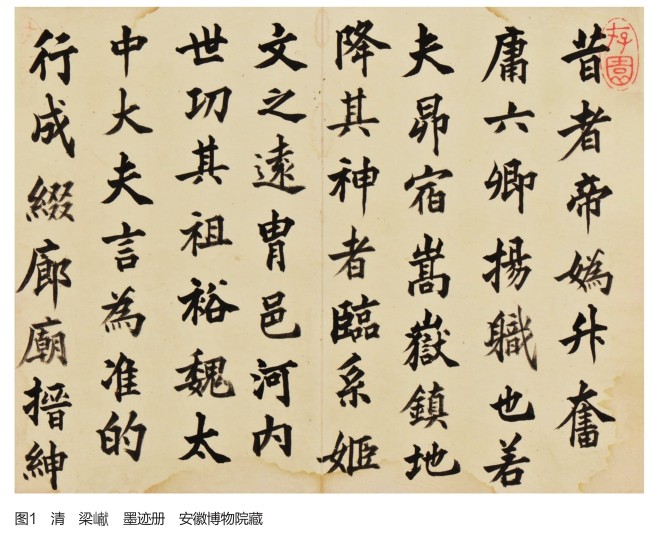 存園
昔者帝媯升奮
庸六卿揚職也若
夫昴宿嵩嶽鎮地
降其神者臨系姬
文之遠胄邑河内
世功其祖裕魏太
中大夫言為准的
行成綴廊廟搢紳
图1 清 梁巘 墨迹册 安徽博物院藏